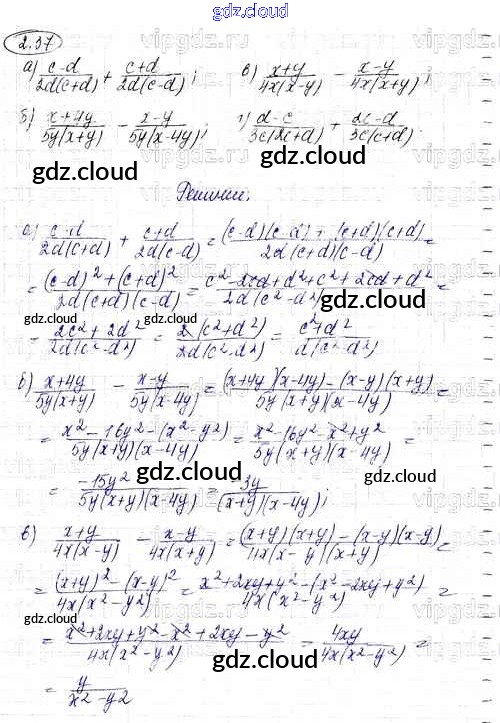 gdz.cloud
2.37
а) (c-d)/(2d(c+d)) + (c+d)/(2d(c-d)); в) (x+y)/(4x(x-y)) - (x-y)/(4x(x+y));
б) (x+4y)/(5y(x+y)) - (x-y)/(5y(x-4y)); г) (d-c)/(3c(2c+d)) + (2c-d)/(3c(c+d)).
gdz.cloud gdz.cloud
Решение:
а) (c-d)/(2d(c+d)) + (c+d)/(2d(c-d)) = ((c-d)(c-d) + (c+d)(c+d))/(2d(c+d)(c-d)) =
= ((c-d)²+(c+d)²)/(2d(c+d)(c-d)) = (c²-2cd+d²+c²+2cd+d²)/(2d(c²-d²)) =
gdz.cloud gdz.cloud gdz.cloud
= (2c²+2d²)/(2d(c²-d²)) = (2(c²+d²))/(2d(c²-d²)) = (c²+d²)/(d(c²-d²))
б) (x+4y)/(5y(x+y)) - (x-y)/(5y(x-4y)) = ((x+4y)(x-4y) - (x-y)(x+y))/(5y(x+y)(x-4y)) =
= (x²-16y²-(x²-y²))/(5y(x+y)(x-4y)) = (x²-16y²-x²+y²)/(5y(x+y)(x-4y)) =
gdz.cloud gdz.cloud
= (-15y²)/(5y(x+y)(x-4y)) = (-3y)/((x+y)(x-4y));
в) (x+y)/(4x(x-y)) - (x-y)/(4x(x+y)) = ((x+y)(x+y) - (x-y)(x-y))/(4x(x-y)(x+y)) =
= ((x+y)²-(x-y)²)/(4x(x²-y²)) = (x²+2xy+y²-(x²-2xy+y²))/(4x(x²-y²)) =
gdz.cloud gdz.cloud
= (x²+2xy+y²-x²+2xy-y²)/(4x(x²-y²)) = (4xy)/(4x(x²-y²)) =
gdz.cloud gdz.cloud
= y/(x²-y²)